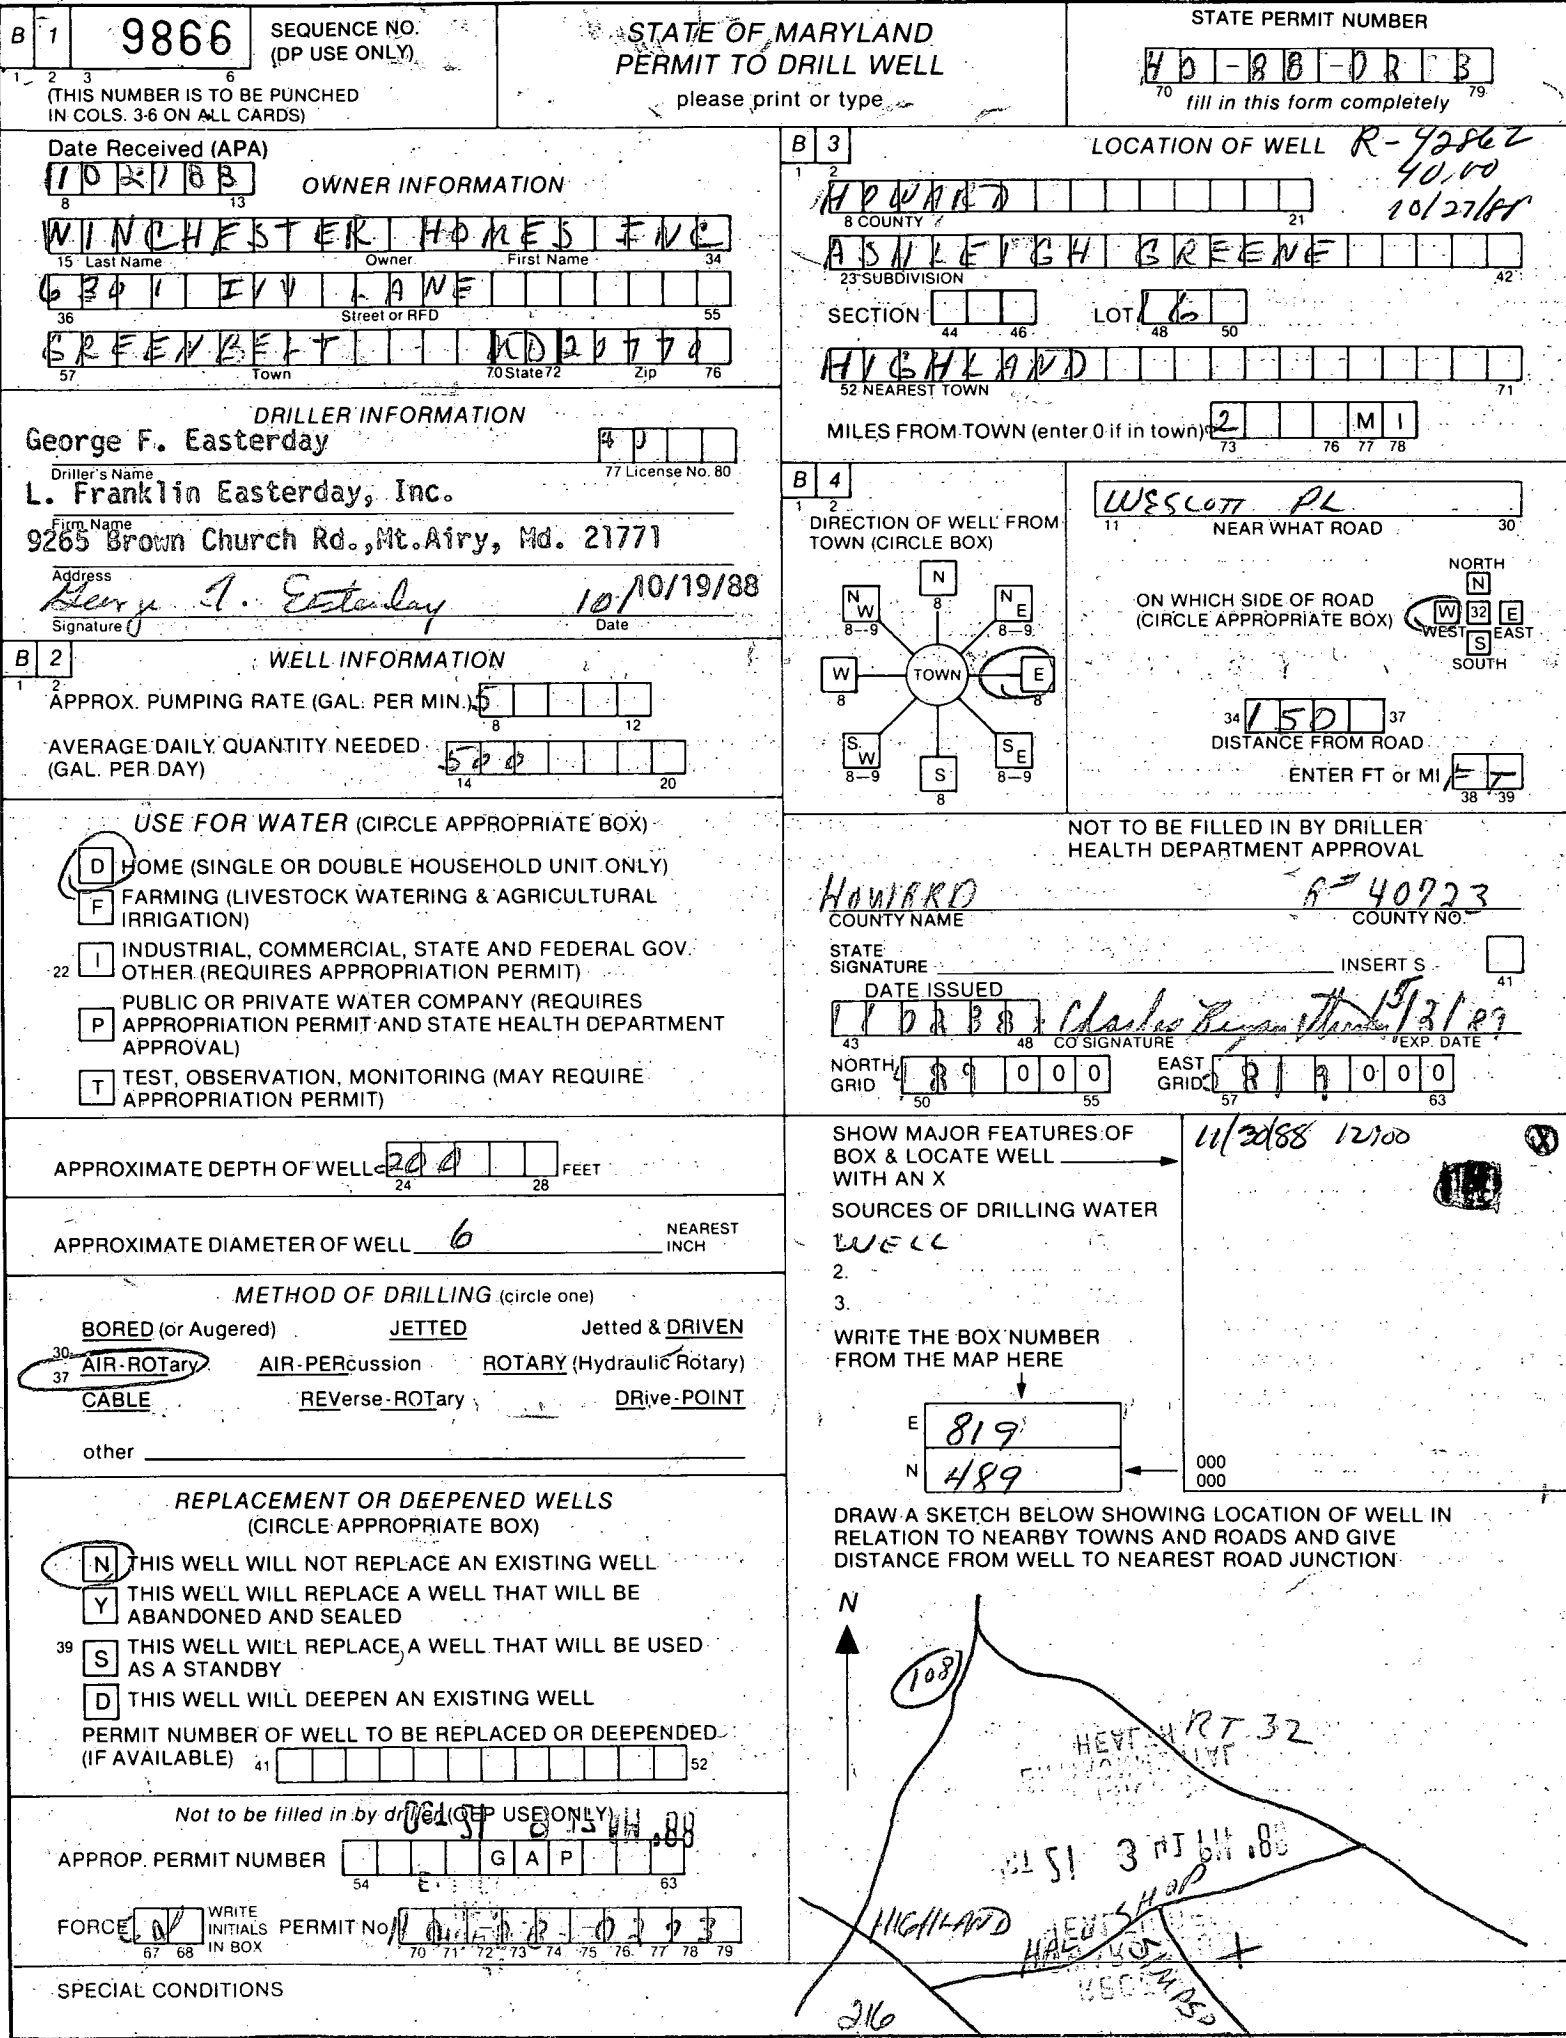 B 1 9866 SEQUENCE NO. (DP USE ONLY)
1 2 3 6
(THIS NUMBER IS TO BE PUNCHED
IN COLS. 3-6 ON ALL CARDS)
STATE OF MARYLAND
PERMIT TO DRILL WELL
please print or type
STATE PERMIT NUMBER
70 79
fill in this form completely
Date Received (APA)
8 13
OWNER INFORMATION
WINCHESTER HOMES INC
15 Last Name Owner First Name 34
6301 IVY LANE
36 Street or RFD 55
GREENBELT MD 20770
57 Town 70 State 72 Zip 76
DRILLER INFORMATION
George F. Easterday 40
Driller's Name 77 License No. 80
L. Franklin Easterday, Inc.
Firm Name
9265 Brown Church Rd., Mt.Airy, Md. 21771
Address
George F. Easterday 10/19/88
Signature Date
B 2 WELL INFORMATION
1 2
APPROX. PUMPING RATE (GAL. PER MIN.) 5
8 12
AVERAGE DAILY QUANTITY NEEDED
(GAL. PER DAY) 500
14 20
USE FOR WATER (CIRCLE APPROPRIATE BOX)
D HOME (SINGLE OR DOUBLE HOUSEHOLD UNIT ONLY)
F FARMING (LIVESTOCK WATERING & AGRICULTURAL
IRRIGATION)
22 I INDUSTRIAL, COMMERCIAL, STATE AND FEDERAL GOV.
OTHER (REQUIRES APPROPRIATION PERMIT)
P PUBLIC OR PRIVATE WATER COMPANY (REQUIRES
APPROPRIATION PERMIT AND STATE HEALTH DEPARTMENT
APPROVAL)
T TEST, OBSERVATION, MONITORING (MAY REQUIRE
APPROPRIATION PERMIT)
APPROXIMATE DEPTH OF WELL 200 FEET
24 28
APPROXIMATE DIAMETER OF WELL 6 NEAREST
INCH
METHOD OF DRILLING (circle one)
BORED (or Augered) JETTED Jetted & DRIVEN
30
37 AIR-ROTary AIR-PERcussion ROTARY (Hydraulic Rotary)
CABLE REVerse-ROTary DRive-POINT
other
REPLACEMENT OR DEEPENED WELLS
(CIRCLE APPROPRIATE BOX)
N THIS WELL WILL NOT REPLACE AN EXISTING WELL
Y THIS WELL WILL REPLACE A WELL THAT WILL BE
ABANDONED AND SEALED
39 S THIS WELL WILL REPLACE A WELL THAT WILL BE USED
AS A STANDBY
D THIS WELL WILL DEEPEN AN EXISTING WELL
PERMIT NUMBER OF WELL TO BE REPLACED OR DEEPENDED
(IF AVAILABLE) 41 52
Not to be filled in by driller (OEP USE ONLY)
APPROP. PERMIT NUMBER G A P
54 63
FORCE WRITE INITIALS IN BOX PERMIT No
67 68 70 71 72 73 74 75 76 77 78 79
SPECIAL CONDITIONS
B 3 LOCATION OF WELL R-42862
1 2 40.00
HOWARD 10/27/88
8 COUNTY 21
ASHLEIGH GREENE
23 SUBDIVISION 42
SECTION LOT 16
44 46 48 50
HIGHLAND
52 NEAREST TOWN 71
MILES FROM TOWN (enter 0 if in town) 2 M I
73 76 77 78
B 4
1 2
DIRECTION OF WELL FROM
TOWN (CIRCLE BOX)
N
8
NW
8-9
NE
8-9
W
8
TOWN
E
8
SW
8-9
S
8
SE
8-9
WESCOTT PL
11 NEAR WHAT ROAD 30
ON WHICH SIDE OF ROAD
(CIRCLE APPROPRIATE BOX)
NORTH
N
W 32 E
WEST EAST
S
SOUTH
34 150 37
DISTANCE FROM ROAD
ENTER FT or MI FT
38 39
NOT TO BE FILLED IN BY DRILLER
HEALTH DEPARTMENT APPROVAL
HOWARD 40723
COUNTY NAME COUNTY NO.
STATE
SIGNATURE INSERT S
41
DATE ISSUED
43 48 CO SIGNATURE EXP. DATE
NORTH GRID 489 000
50 55
EAST GRID 819 000
57 63
SHOW MAJOR FEATURES OF
BOX & LOCATE WELL
WITH AN X
11/30/88 12:00 X
SOURCES OF DRILLING WATER
WELL
2.
3.
WRITE THE BOX NUMBER
FROM THE MAP HERE
E 819
N 489
000
000
DRAW A SKETCH BELOW SHOWING LOCATION OF WELL IN
RELATION TO NEARBY TOWNS AND ROADS AND GIVE
DISTANCE FROM WELL TO NEAREST ROAD JUNCTION
N
108
RT 32
HIGHLAND
216